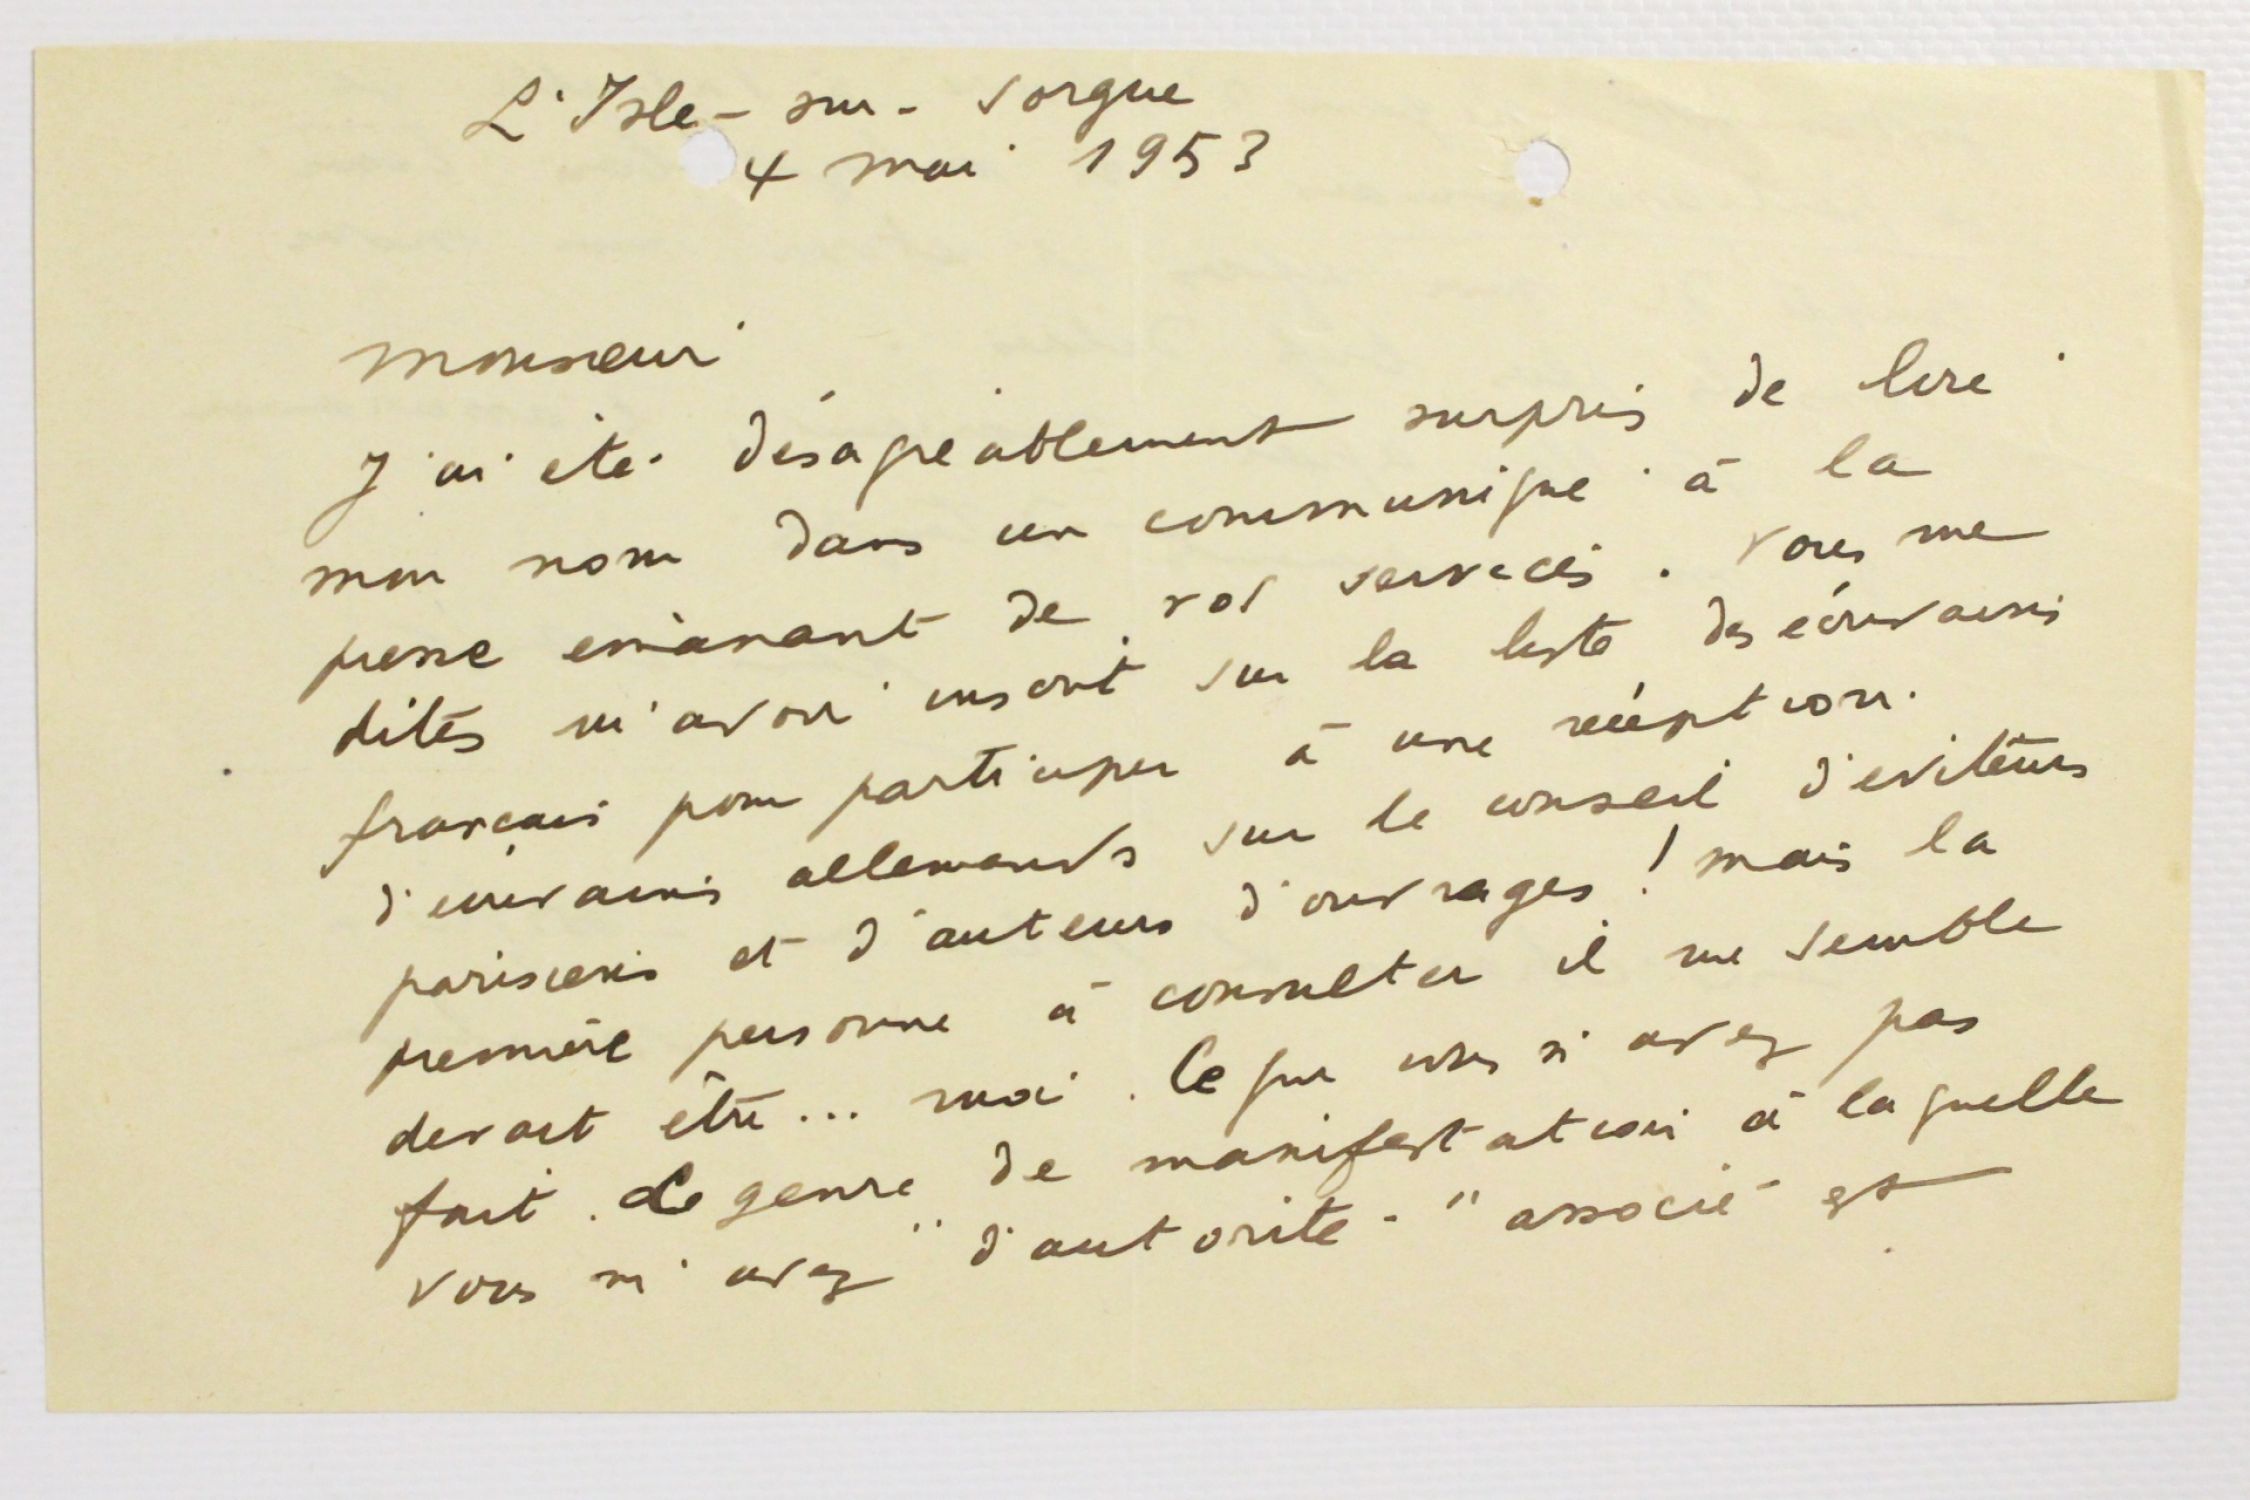 L'Isle-sur-Sorgue
4 mai 1953
Monsieur
J'ai été désagréablement surpris de lire
mon nom dans un communiqué à la
presse émanant de vos services. Vous me
dites m'avoir inscrit sur la liste des écrivains
français pour participer à une réception
d'écrivains allemands sur le conseil d'éditeurs
parisiens et d'auteurs d'ouvrages ! Mais la
première personne à consulter il me semble
devait être... moi. Ce que vous n'avez pas
fait. Le genre de manifestation à laquelle
vous m'avez "d'autorité" associé est